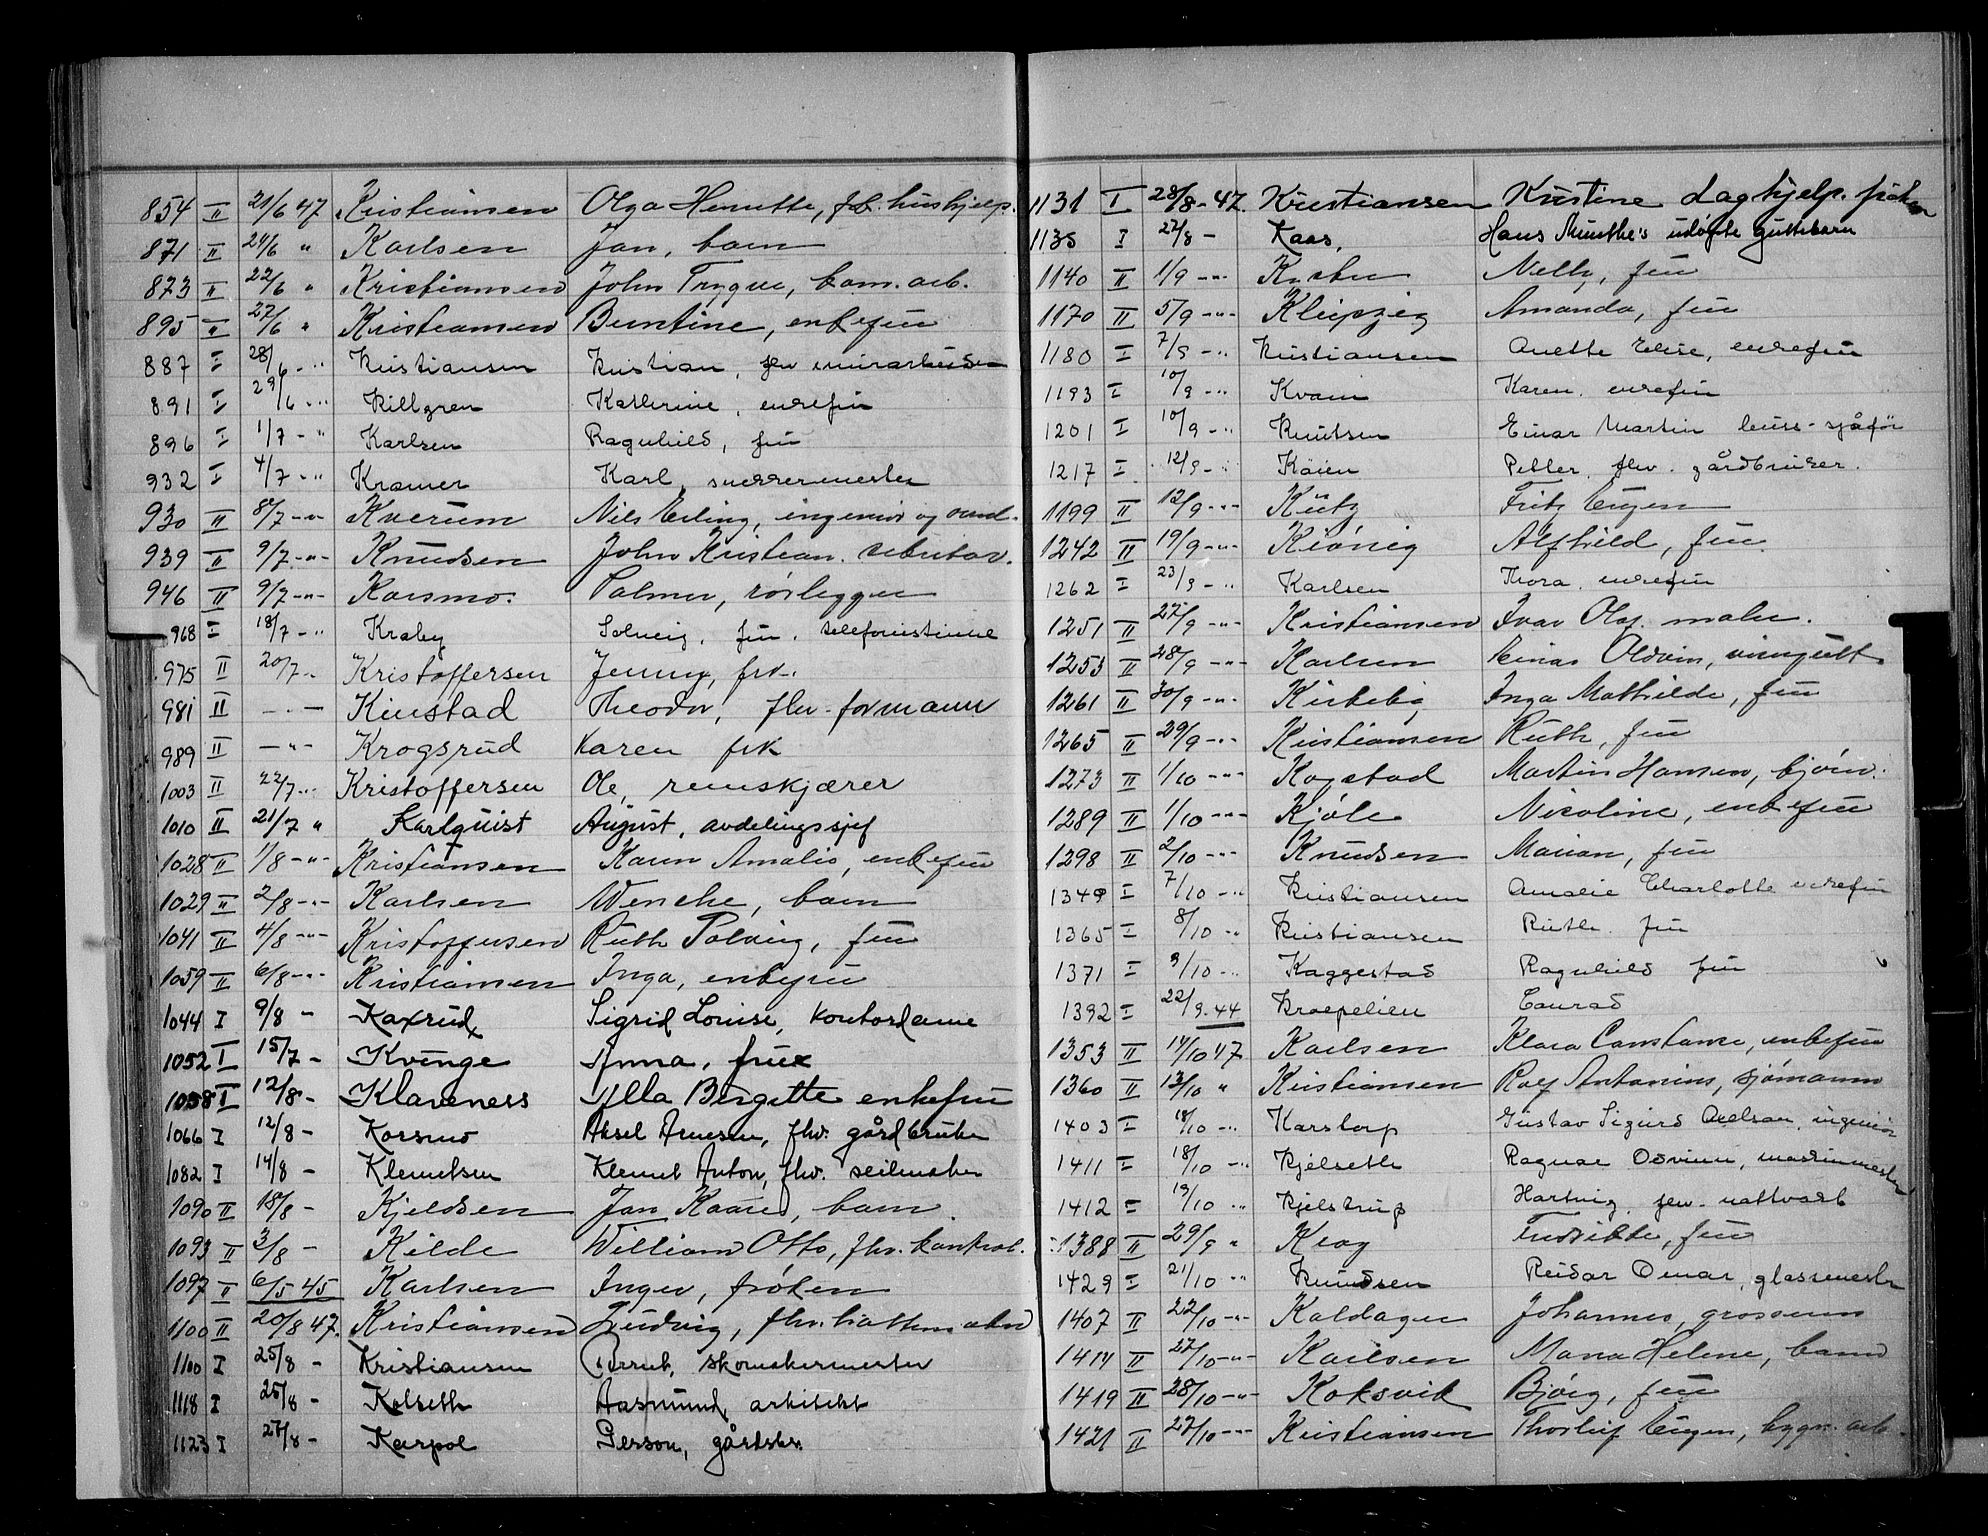 854 II 21/6 47 Kristiansen Olga Henrette, fb. hushjelp.
871 II 24/6 " Karlsen Jan, barn
873 II 22/6 " Kristiansen John Trygve, kom. arb.
895 II 27/6 " Kristiansen Berntine, enkefru
887 I 28/6 - " Kristiansen Kristian, fhv murarbeider
891 I 29/6 - " Killgren Kathrine, enkefru
896 I 1/7 - " Karlsen Ragnhild, fru
932 I 4/7 - " Kramer Karl, snekkermester
930 II 8/7 - " - Kverum Nils Erling, ingeniør og
939 II 9/7 - " - Knudsen John Kristian.
946 II 9/7 - " - Korsmo. Palmer, rørlegger
968 I 18/7 - " Kraby Solveig, fru, telefonistinne
975 II 20/7 - Kristoffersen Jenny, frk.
981 II - . - Kinstad Theodor, fhv. formann
989 II - " - Krogsrud Karen frk
1003 II 22/7 - " Kristoffersen Ole, remskjærer
1010 II 21/7 " Karlquist August, avdelingssjef
1028 II 1/8 - " - Kristiansen Karen Amalie, enkefru
1029 II 2/8 - " - Karlsen Wenche, barn
1041 II 4/8 - " - Kristoffersen Ruth Solveig, fru
1059 II 6/8 - " - Kristiansen Inga, enkefru
1044 I 9/8 - Kaxrud Sigrid Louise, kontordame
1052 I 15/7 - Kvinge Anna, frue
1058 I 12/8 - Klaveness Ylla Birgitte enkefru
1066 I 12/8 - Korsmo Aksel Arnesen, fhv. gårdbruker
1082 I 14/8 - Klemetsen Klemet Anton, fhv. seilmaker
1090 II 18/8 - Kjeldsen Jan Kaare, barn
1093 II 3/8 - Kilde William Otto, fhv. kontrol.
1097 II 6/5 45 Karlsen Inger, frøken
1100 II 20/8 47. Kristiansen Ludvig, fhv. hattemaker
1100 I 25/8 - Kristiansen Bernt, skomakermester
1118 I 25/8 - Kolseth Aasmund, arkitekt
1123 I 27/8 - Karpol Gerson,
1131 I 28/8 - 47. Kristiansen Kristine daghjelp. frøken
1135 I 22/8 - Kaas, Hans Munthe's udøpte guttebarn
1140 II 1/9 - " - Nelly, fru
1170 II 5/9 - " - Kleipzig Amanda, fru
1180 I 7/9 - " Kristiansen Anette Elise, enkefru
1193 I 10/9 - " Kvam Karen, enkefru
1201 I 10/9 - " Knutsen Einar Martin buss-sjåfør
1217 I 12/9 - " Køien Petter, fhv. gårdbruker.
1199 II 12/9 - " - Kütz Fritz Eugen
1242 II 19/9 - " - Kiønig Alfhild, fru
1262 I 23/9 - " Karlsen Thora, enkefru
1251 II 27/9 - " - Kristiansen Ivar Olaf. maler.
1253 II 28/9 - " - Karlsen Einar Oldvin, visergutt
1261 II 30/9 - " - Kirkeby Inga Mathilde, fru
1265 II 29/9 - " - Kristiansen Ruth, fru
1273 II 1/10 - " - Kogstad Martin Hansen,
1289 II 1/10 - " - Kjøle Nicoline, enkefru
1298 II 2/10 - " - Knudsen Marian, fru
1349 I 7/10 - " Kristiansen Amalie Charlotte enkefru
1365 I 8/10 - " Kristiansen Ruth fru
1371 I 9/10 - " Kaggestad Ragnhild fru
1392 I 22/9 - 44 Kroepelien Conrad
1353 II 14/10 47 Karlsen Klara Constance, enkefru
1360 II 13/10 " Kristiansen Rolf Antonius, sjømann
1403 I 18/10 - " Karstorp Gustav Sigurd Axelsøn, ingeniør
1411 I 18/10 - " Kjelseth Ragnar Odvinn, maskinmester
1412 I 19/10 " Kjelstrup Hartvig, fhv. nattvakt
1388 II 29/9 " Krog Fredrikke, fru
1429 I 21/10 " Knudsen Reidar Omar, glassmester
1407 II 22/10 - " - Kaldager Johannes, grosserer
1414 II 27/10 - " - Karlsen Mona Helene, barn
1419 II 28/10 - " - Koksvik Bjørg, fru
1421 II 27/10 - " - Kristiansen Thorleif Eugen, bygn. arb.